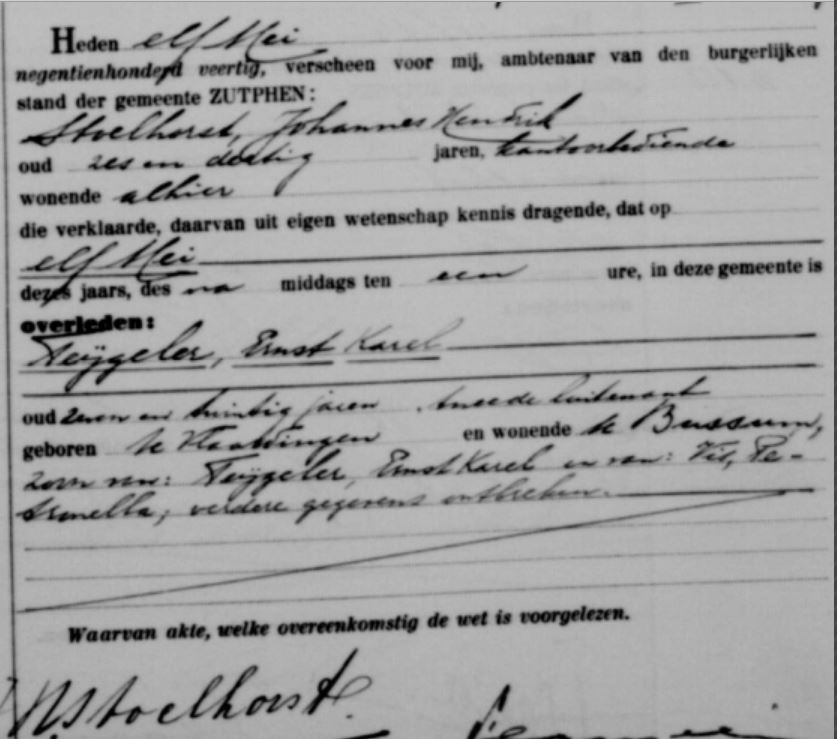 Heden elf Mei
negentienhonderd veertig, verscheen voor mij, ambtenaar van den burgerlijken
stand der gemeente ZUTPHEN:
Stoelhorst, Johannes Hendrik
oud zes en dertig jaren, kantoorbediende
wonende alhier
die verklaarde, daarvan uit eigen wetenschap kennis dragende, dat op
elf Mei
dezes jaars, des na middags ten een ure, in deze gemeente is
overleden:
Teijgeler, Ernst Karel
oud zeven en twintig jaren, tweede luitenant
geboren te Vlaardingen en wonende te Bussum,
zoon van: Teijgeler, Ernst Karel en van: Vis, Pe-
tronella; verdere gegevens ontbreken.
Waarvan akte, welke overeenkomstig de wet is voorgelezen.
Stoelhorst.